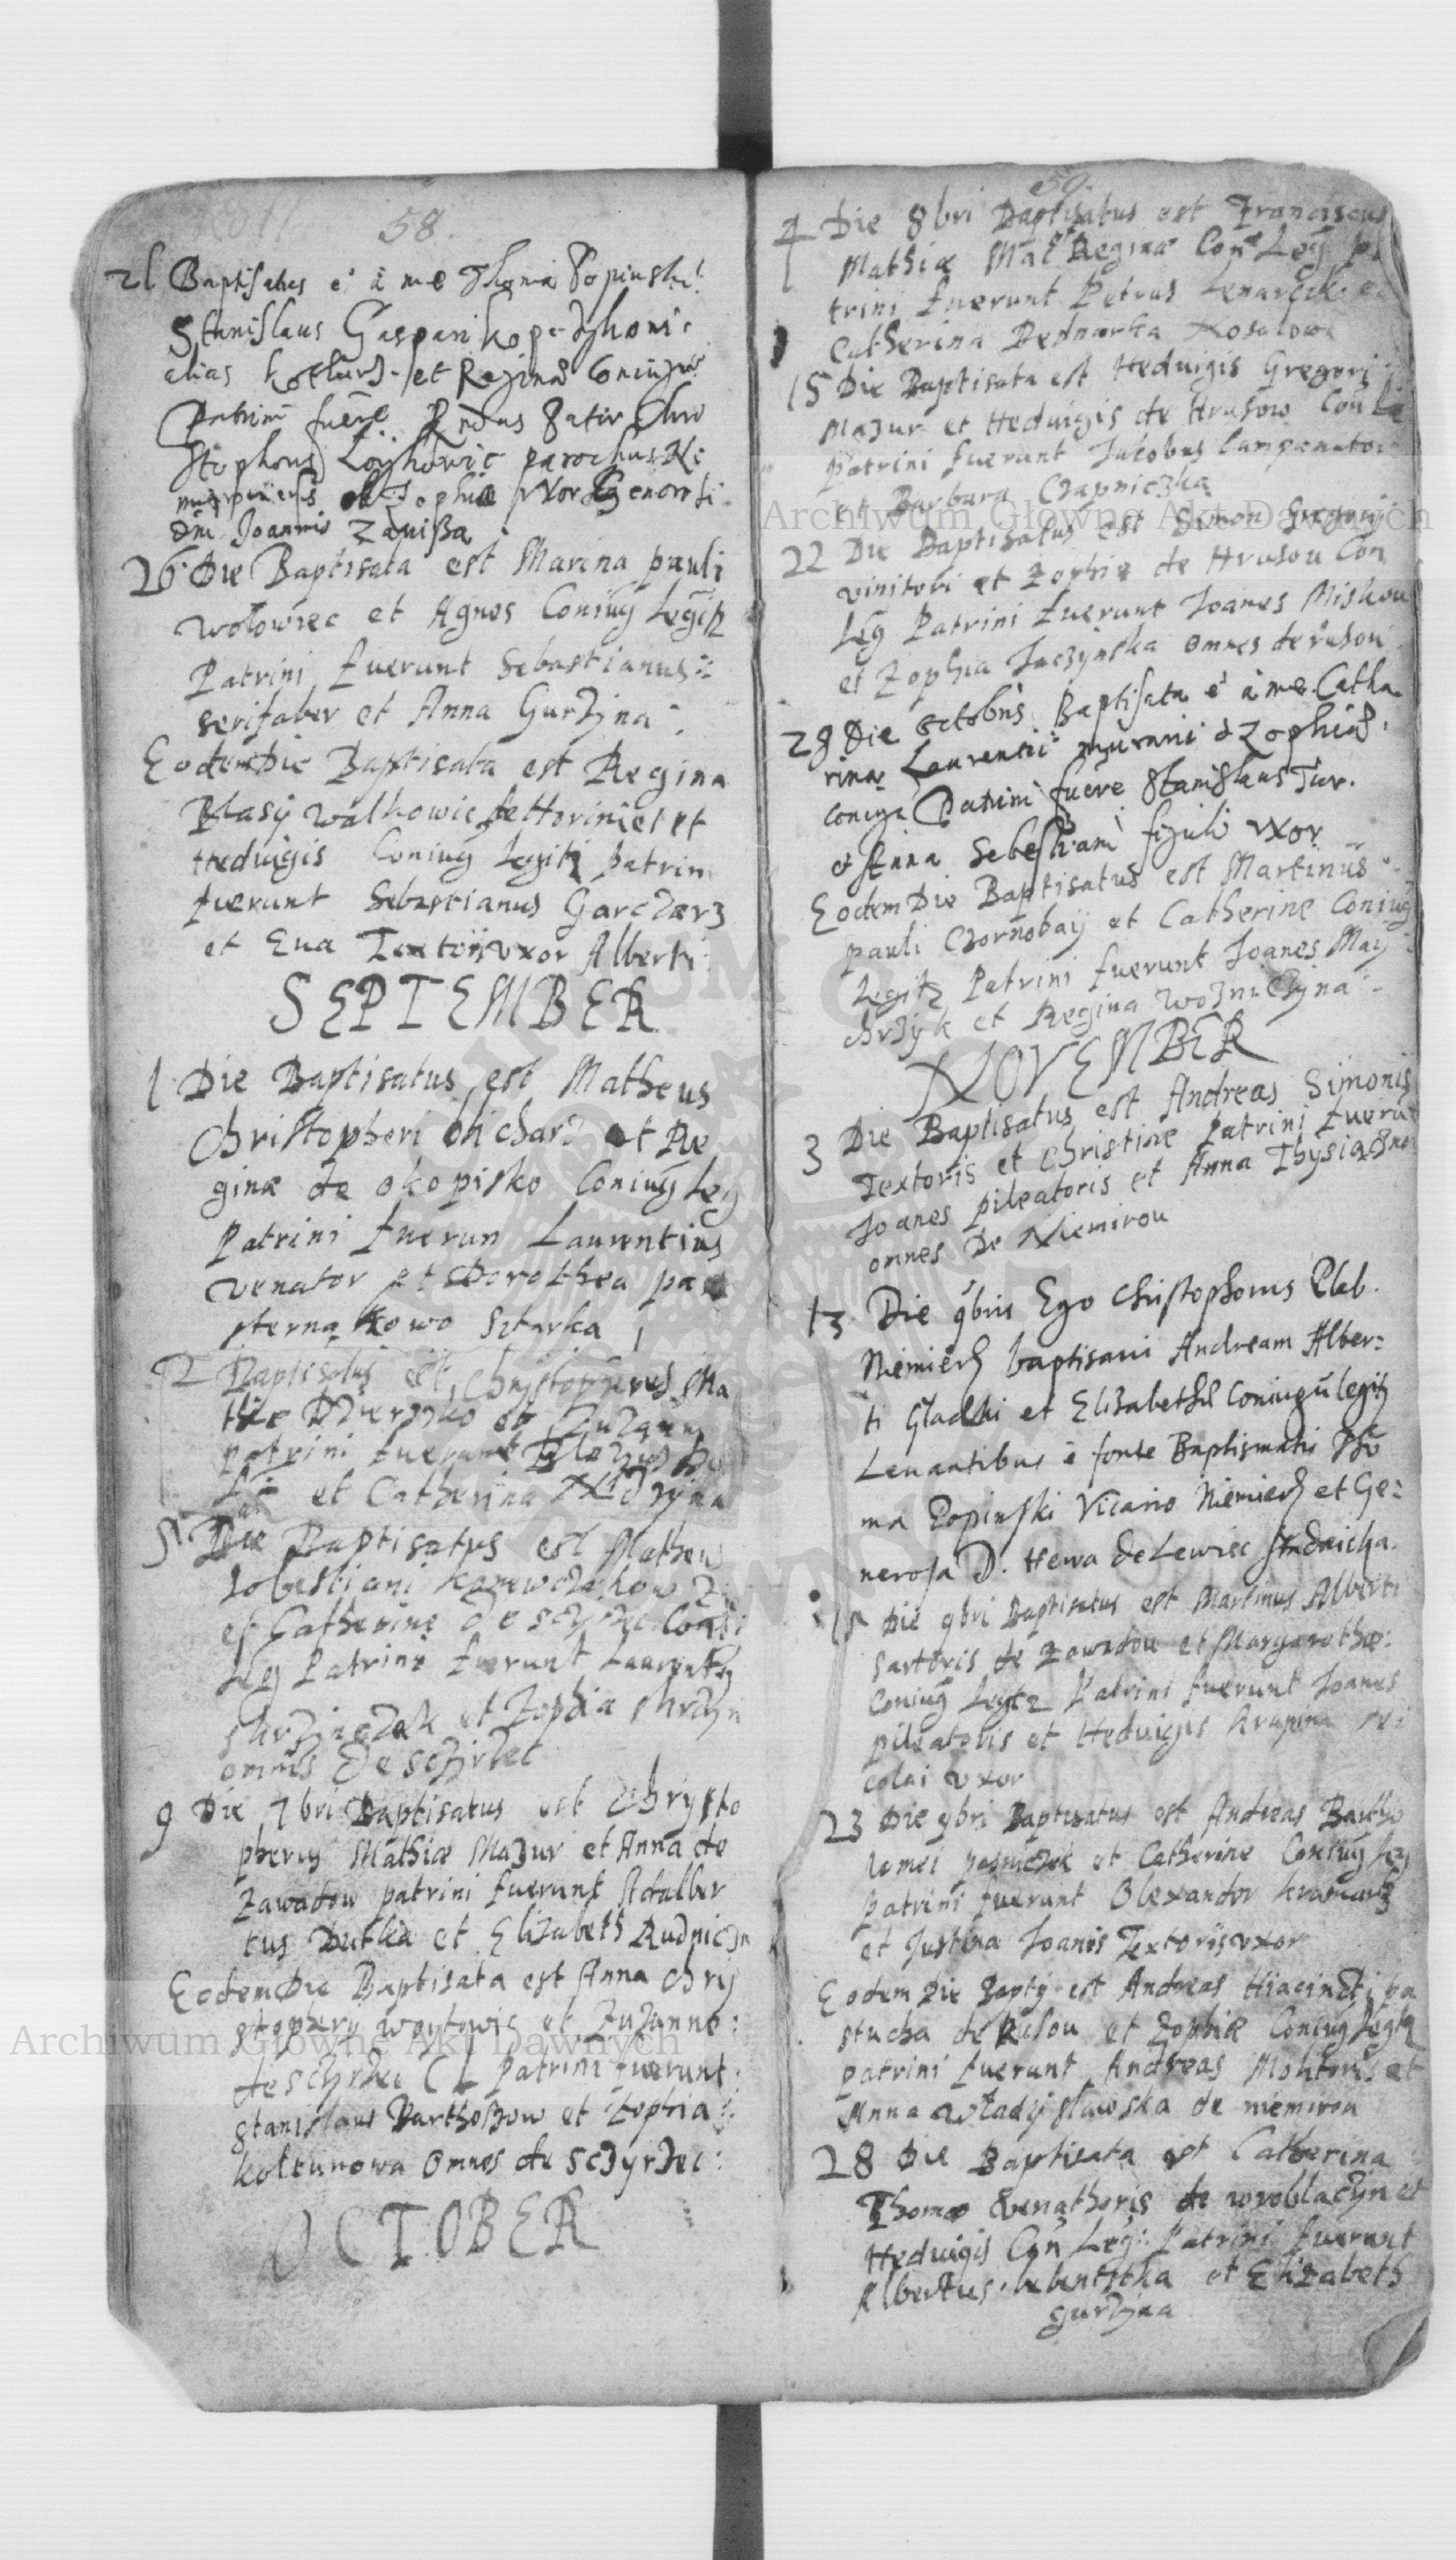 58.
21 Baptisatus e' a me Thoma Popinski
Stanislaus Gaspari
alias et Reginae Coniugu
Patrini fuere Rndus Pater Chri
stophorus parochus Ni
et Sophia vxor Generosi
dni Joannis Zapissa
26 Die Baptisata est Marina pauli
Wolowiec et Agnes Coniug Legitz
Patrini fuerunt Sebastianus
serifaber et Anna Gurzyna
Eodem Die Baptisata est Regina
Blasij Walkowic de Horiniec et
Heduigis Coniug Legitz patrin
fuerunt Sebastianus Garczarz
et Eua Textoris vxor Alberti
SEPTEMBER
1 Die Baptisatus est Matheus
Christopheri et Re
ginae de okopisko Coniug Leg
Patrini fuerun Laurentius
venator et Dorothea pa
sterna
2 Baptisatus est Chrystopherus Ma
thie et Zuzanne
patrini fuerunt Blazius
et Catherina
5 Die Baptisatus est Matheus
Sobestiani
et Catherine de sczyrzec Coniu
Leg Patrini fuerunt Laurenty
et Zophia
omnes de sczirzec
9 Die 7bri Baptisatus est Chrysto
pherus Mathiae Mazur et Anna de
Zawadow patrini fuerunt Adalber
tus Dutka et Elizabeth Rudniczn
Eodem Die Baptisata est Anna Chrij
stophery woytowic et Zuzanne:
de sczyrzec C L Patrini fuerunt:
stanislaus Barthoszow et Zophia:
koltunowa Omnes de sczyrzec:
OCTOBER
59.
4 Die 8bri Baptisatus est Franciscus
Mathiae Reginae Leg pa
trini fuerunt Petrus Lenarczik et
Catherina Bednarka
15 Die Baptisata est Heduigis Gregori
Mazur et Heduigis de Hrusow Con Le
Patrini fuerunt Jakobus Campanator
et Barbara Czapniczka
22 Die Baptisatus est Simon Gregorij
vinitori et Zophie de Hrusou Con
Leg Patrini fuerunt Joanes Miskou
et Zophia Jaczynska omnes de rusou
28 Die octobris Baptisata e' a me Catha
rina Laurentii murarii & Zophiae
coniug Patrini fuere Stanislaus Tur.
et Anna Sebestiani figuli vxor
Eodem Die Baptisatus est Martinus
pauli Czornobaij et Catherine Coniug
Legitz Patrini fuerunt Joanes May
chrzyk et Regina Wozniczyna
NOVEMBER
3 Die Baptisatus est Andreas Simonis
Textoris et Christine Patrini fueru
Joanes pileatoris et Anna
omnes De Niemirou
13 Die 9bris Ego Christophorus Pleb.
Niemier baptisavi Andream Alber=
ti Gladki et Elisabethae Coniugu legitz
Leuantibus e fonte Baptismatis Tho
ma Popinski Vicario Niemier et Ge=
nerosa D. Hewa de Lewiec
15 Die 9bri Baptisatus est Martinus Alberti
sartoris de Zawadou et Margarethae:
Coniug Legitz Patrini fuerunt Joanes
pileatoris et Heduigis Krupina Ni
colai vxor
23 Die 9bri Baptisatus est Andreas Bartho
lomei et Catherine Coniug Leg
patrini fuerunt Olexander Kramarz
et Justina Joanis Textoris vxor
Eodem Die Bapty est Andreas Hiacincti pa
stucha de Rusou et Zophiae Coniug Legitz
patrini fuerunt Andreas et
Anna Wladyslawska de niemirou
28 Die Baptisata est Catherina
Thomae Venathoris de wroblaczyn et
Heduigis Con Leg: Patrini fuerunt
Albertus et Elizabeth
gurzyna
Archiwum Główne Akt Dawnych
Archiwum Główne Akt Dawnych